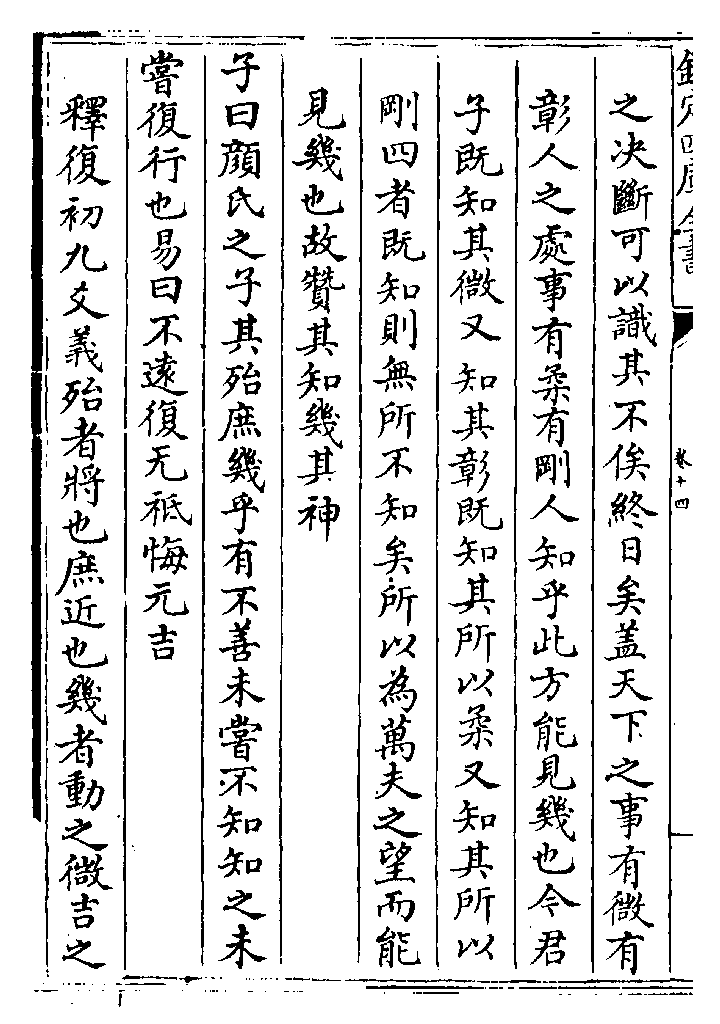 欽定四庫全書
卷十四
之决斷可以識其不俟終日矣盖天下之事有微有
彰人之處事有柔有剛人知乎此方能見幾也今君
子既知其微又知其彰既知其所以柔又知其所以
剛四者既知則無所不知矣所以為萬夫之望而能
見幾也故贊其知幾其神
子曰顔氏之子其殆庶幾乎有不善未嘗不知知之未
嘗復行也易曰不遠復无祗悔元吉
釋復初九爻義殆者將也庶近也幾者動之微吉之